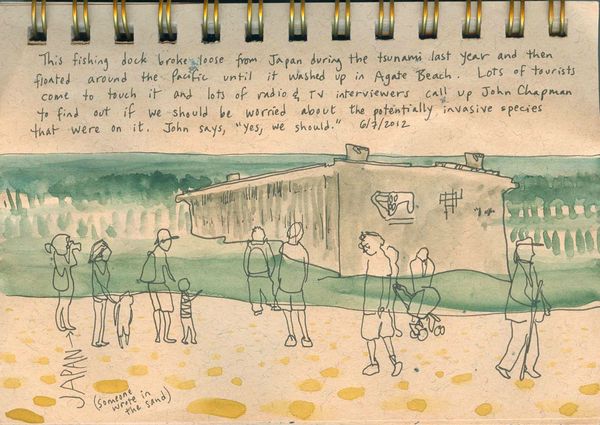 This fishing dock broke loose from Japan during the tsunami last year and then
floated around the Pacific until it washed up in Agate Beach. Lots of tourists
come to touch it and lots of radio & TV interviewers call up John Chapman
to find out if we should be worried about the potentially invasive species
that were on it. John says, "Yes, we should." 6/7/2012
JAPAN →
(someone
wrote in
the sand)